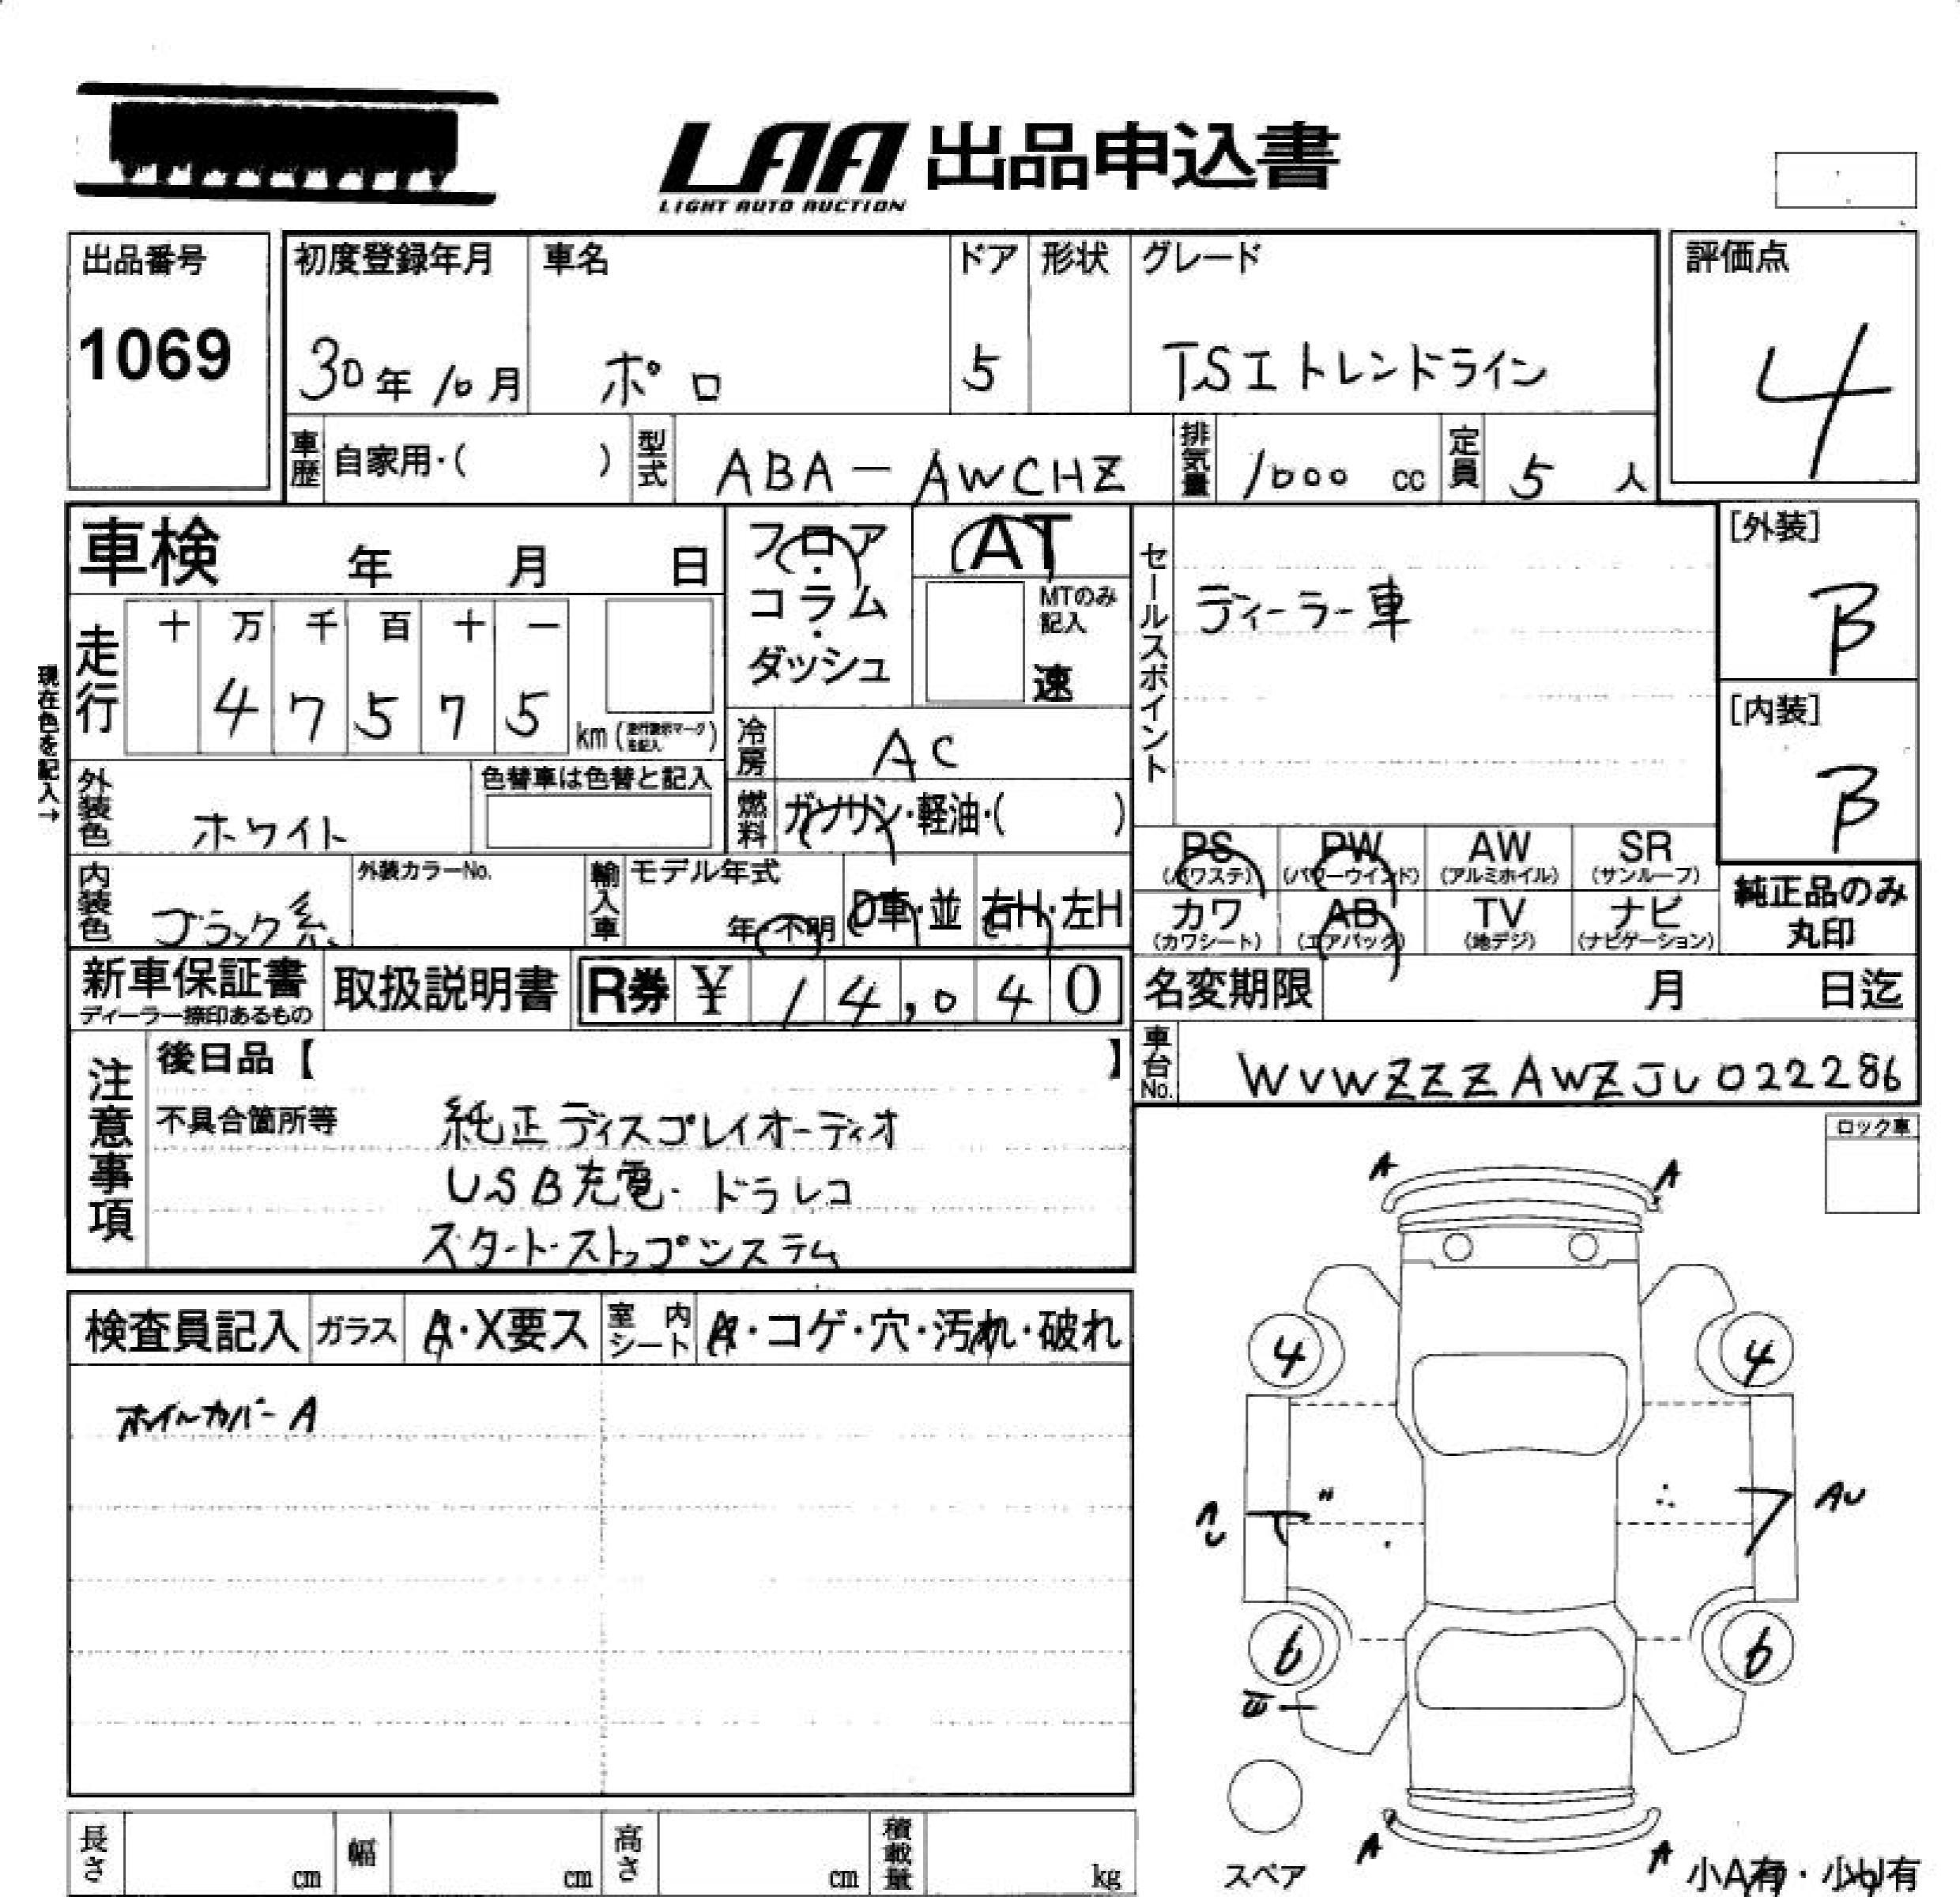 LAA 出品申込書
LIGHT AUTO AUCTION
出品番号
1069
初度登録年月
30年 10月
車名
ポロ
ドア
5
形状
グレード
TSI トレンドライン
評価点
4
車歴 自家用・( )
型式 ABA-AWCHZ
排気量 1000 cc
定員 5 人
車検 年 月 日
走行 十 万 千 百 十 一
4 7 5 7 5
km (走行表示マークを記入)
現在色を記入→
フロア・コラム・ダッシュ
AT
MTのみ記入
速
冷房 AC
燃料 ガソリン・軽油・( )
セールスポイント
ディーラー車
[外装]
B
[内装]
B
外装色 ホワイト
色替車は色替と記入
内装色 ブラック系
外装カラーNo.
輸入車 モデル年式
年・不明
D車・並
右H・左H
PS (パワステ)
PW (パワーウインド)
AW (アルミホイル)
SR (サンルーフ)
カワ (カワシート)
AB (エアバック)
TV (地デジ)
ナビ (ナビゲーション)
純正品のみ丸印
新車保証書
ディーラー捺印あるもの
取扱説明書
R券 ¥ 14,040
名変期限 月 日迄
車台No. WVWZZZAWZJU022286
注意事項
後日品【 】
不具合箇所等
純正ディスプレイオーディオ
USB充電・ドラレコ
スタート・ストップシステム
ロック車
検査員記入
ガラス A・X要ス
室内シート A・コゲ・穴・汚れ・破れ
ホイルカバーA
A A
4 4
AU
6 6
A A
スペア
小A有・小U有
長さ cm
幅 cm
高さ cm
積載量 kg